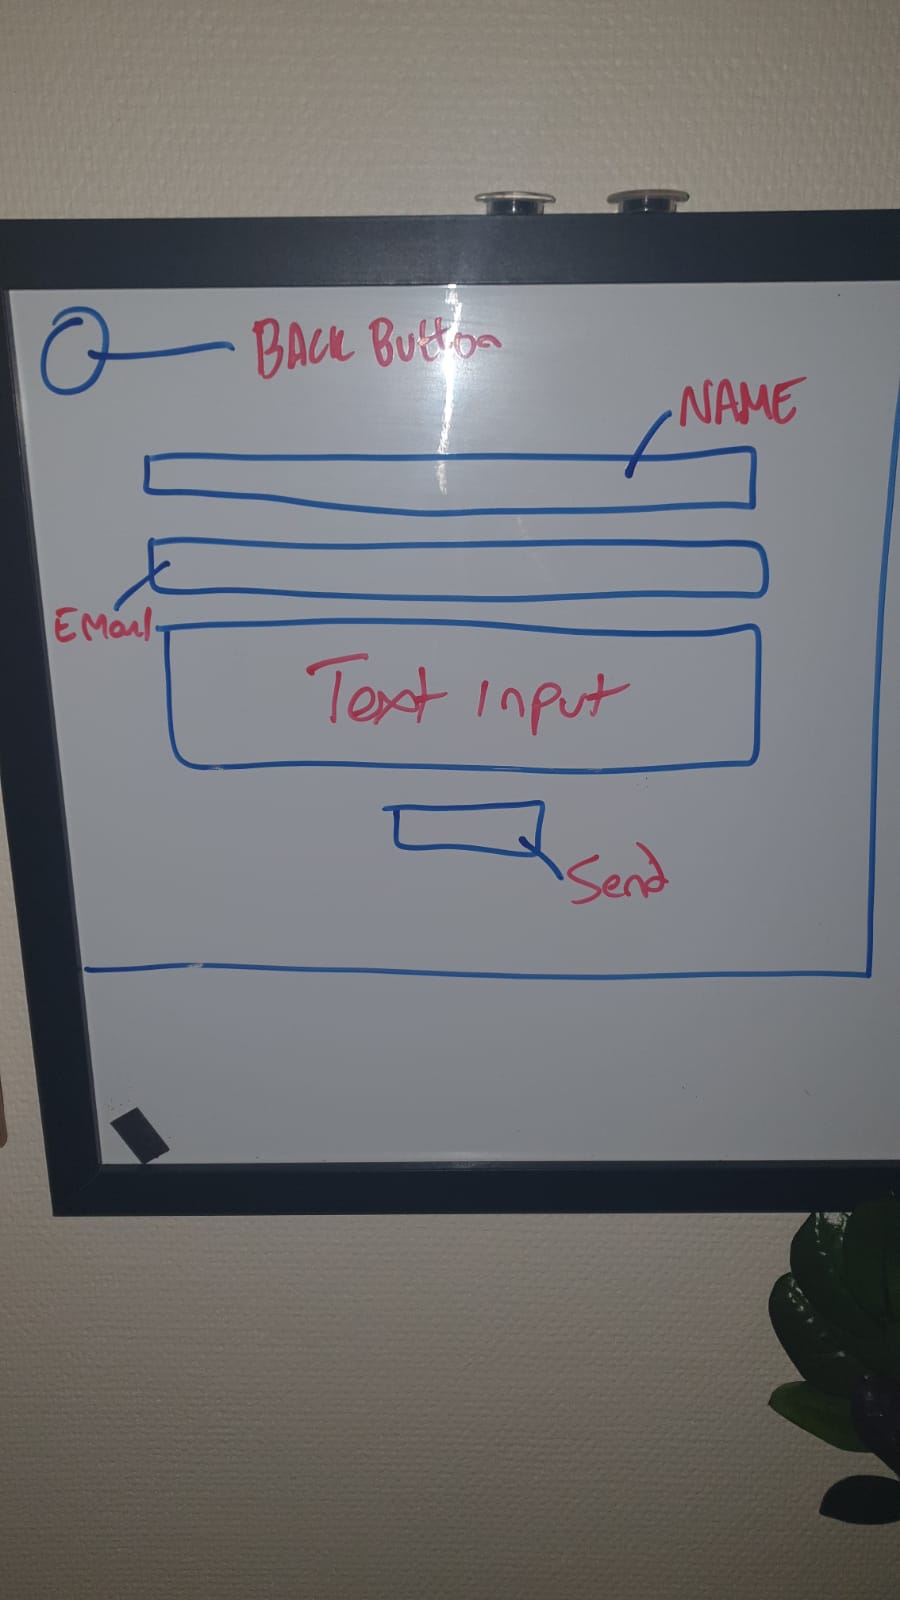 BACK Button
NAME
Email
Text input
Send